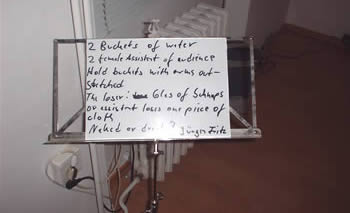 2 Buckets of water
2 female Assistent of audience
Hold buckets with arms out-
stretched
The loser: Glas of Schnaps
or assistent loses one piece of
cloth
Naked or drunk?
Jürgen Fritz